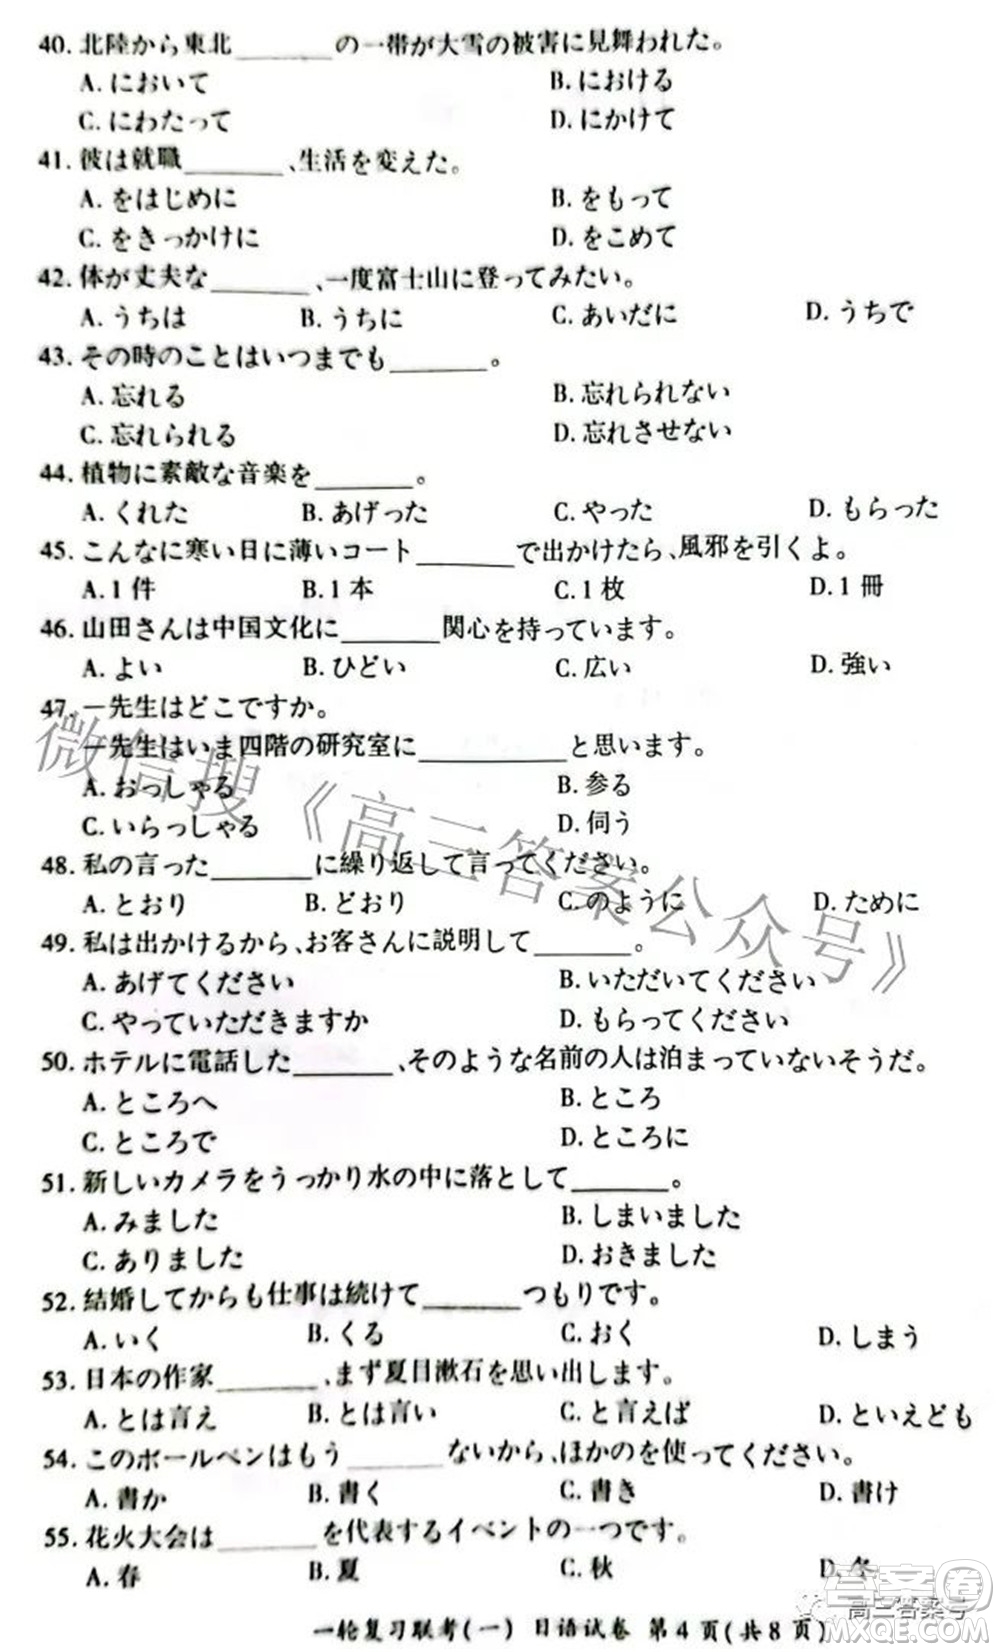 40. 北陸から東北______の一帯が大雪の被害に見舞われた。
A. において B. における
C. にわたって D. にかけて
41. 彼は就職______、生活を変えた。
A. をはじめに B. をもって
C. をきっかけに D. をこめて
42. 体が丈夫な______、一度富士山に登ってみたい。
A. うちは B. うちに C. あいだに D. うちで
43. その時のことはいつまでも______。
A. 忘れる B. 忘れられない
C. 忘れられる D. 忘れさせない
44. 植物に素敵な音楽を______。
A. くれた B. あげった C. やった D. もらった
45. こんなに寒い日に薄いコート______で出かけたら、風邪を引くよ。
A. 1 件 B. 1 本 C. 1 枚 D. 1 冊
46. 山田さんは中国文化に______関心を持っています。
A. よい B. ひどい C. 広い D. 強い
47. ー先生はどこですか。
ー先生はいま四階の研究室に______と思います。
A. おっしゃる B. 参る
C. いらっしゃる D. 伺う
48. 私の言った______に繰り返して言ってください。
A. とおり B. どおり C. のように D. ために
49. 私は出かけるから、お客さんに説明して______。
A. あげてください B. いただいてください
C. やっていただきますか D. もらってください
50. ホテルに電話した______、そのような名前の人は泊まっていないそうだ。
A. ところへ B. ところ
C. ところで D. ところに
51. 新しいカメラをうっかり水の中に落として______。
A. みました B. しまいました
C. ありました D. おきました
52. 結婚してからも仕事は続けて______つもりです。
A. いく B. くる C. おく D. しまう
53. 日本の作家______、まず夏目漱石を思い出します。
A. とは言え B. とは言い C. と言えば D. といえども
54. このボールペンはもう______ないから、ほかのを使ってください。
A. 書か B. 書く C. 書き D. 書け
55. 花火大会は______を代表するイベントの一つです。
A. 春 B. 夏 C. 秋 D. 冬
一轮复习联考(一) 日语试卷 第 4 页(共 8 页)
微信搜《高三答案公众号》
高三答案号
答案圈